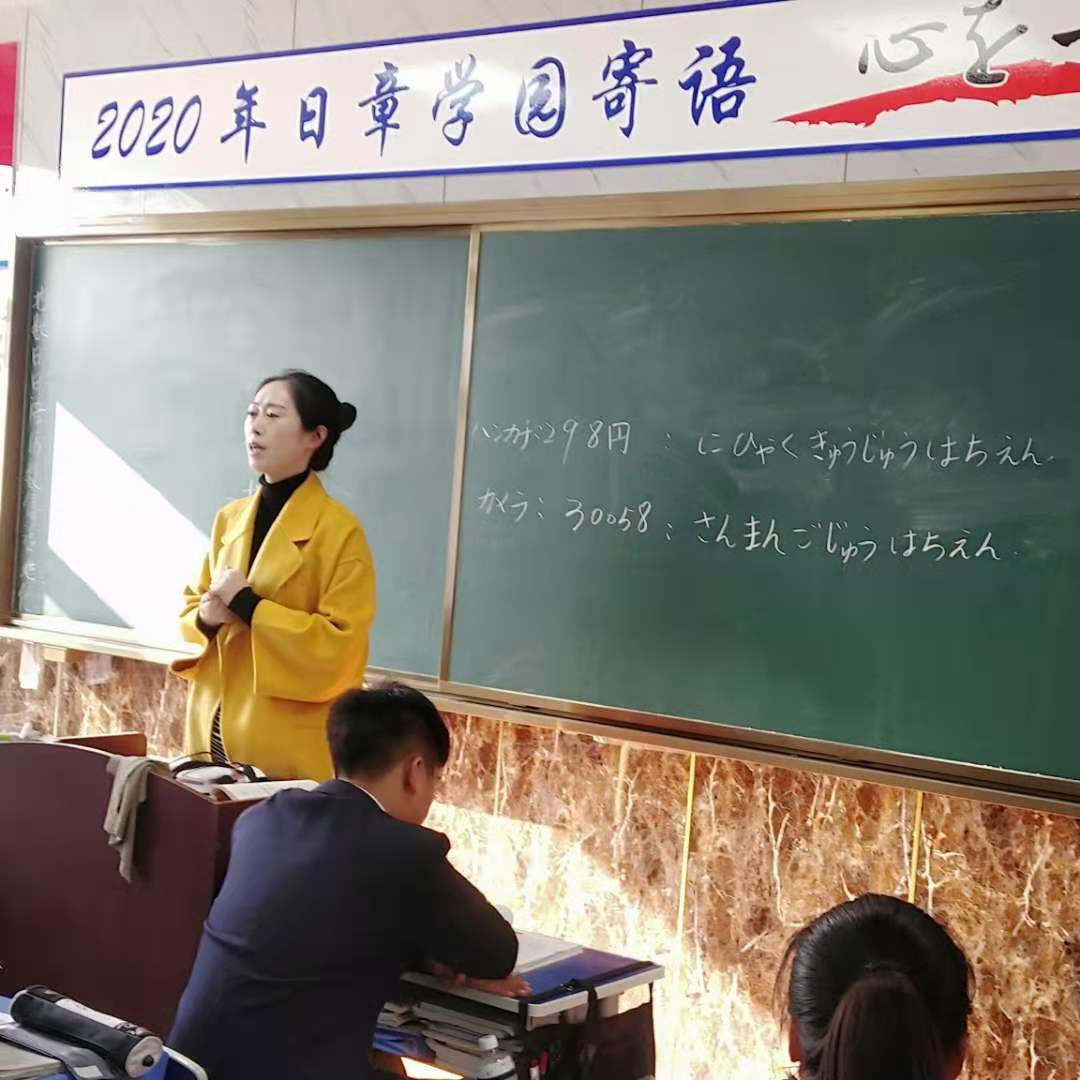 2020年日章学园寄语
心を一
ハンカチ:298円 : にひゃくきゅうじゅうはちえん.
カメラ: 30058 : さんまんごじゅうはちえん.